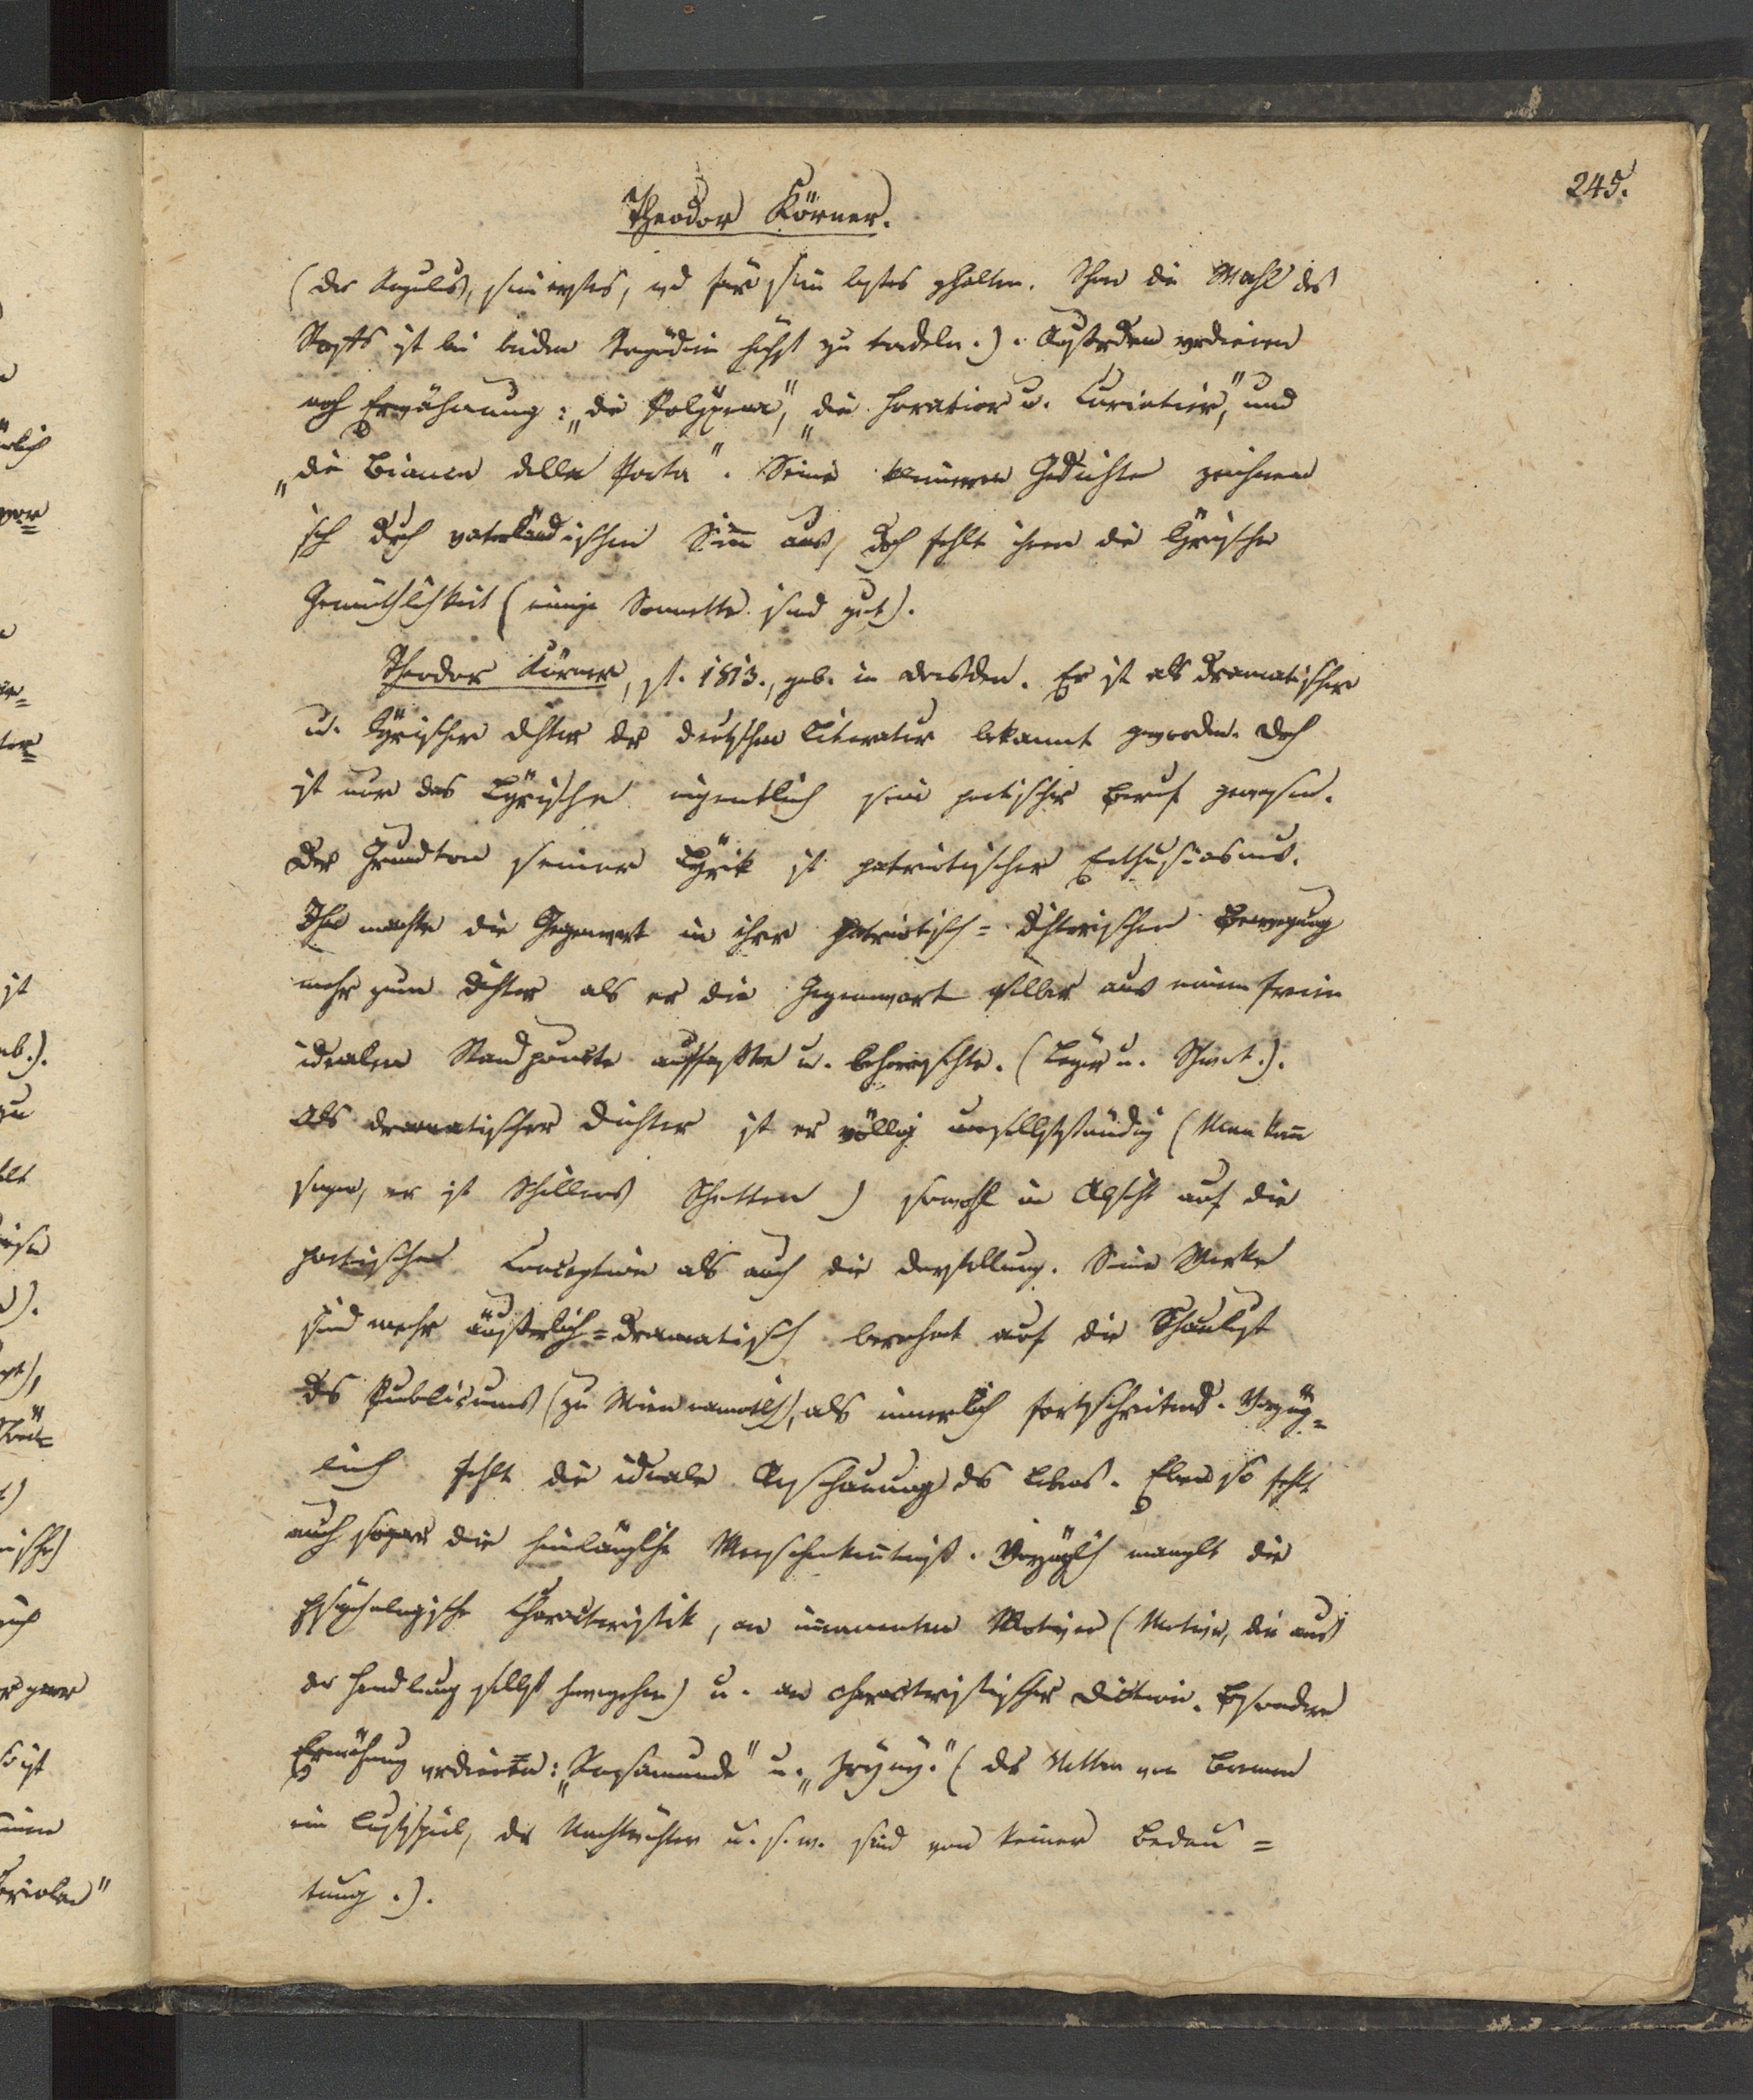 245.
Theodor Körner.
(der Regulus, sein erstes, wd für sein bestes ghalten. Schon die Wahl des
Stoffs ist bei beiden Tragödien höchst zu tadeln.). Außerdem verdienen
noch Erwähnung: „die Polyxena“, „die Horatier u. Curiatier“, und
„die Bianca della Porta“. Seine kleineren Gedichte zeichnen
sich dch vaterländischen Sinn aus, doch fehlt ihnen die lyrische
Gemüthlichkeit (einige Sonnette sind gut).
Theodor Körner, st. 1813., geb. in Dresden. Er ist als dramatischer
u. lyrischer Dichter der deutschen Literatur bekannt geworden. Doch
ist nur das Lyrische eigentlich sein poetischer Beruf gewesen.
Der Grundton seiner Lyrik ist patriotischer Enthusiasmus.
Ihn machte die Gegenwart in ihrer patriotisch= dichterischen Bewegung
mehr zum Dichter als er die Gegenwart selber aus einem freien
idealen Standpuncte auffaßte u. beherrschte. (Leyer u. Schwt.).
Als dramatischer Dichter ist er völlig unselbstständig (Man kann
sagen, er ist Schillers Schatten) sowohl in Absicht auf die
poetischen Conception als auch die Darstellung. Seine Werke
sind mehr äußerlich=dramatisch berechnet auf die Schaulust
des Publicums (zu Wien namtlch), als innerlich fortschreitend. Vorzüg=
lich fehlt die ideale Anschauung des Lebens. Eben so fehlt
auch sogar die hinlängliche Menschenkenntniß. Vorzüglich mangelt die
psychologische Characteristik, an immanenten Motiven (Motive, die aus
der Handlung selbst hervgehen) u. an characteristischer Diction. Besondere
Erwähnung verdienen: „Rosamunde“ u. „Zryny.“ (der Vetter von Bremen
ein Lustspiel, der Nachtwächter u. s. w. sind von keiner Bedeu=
tung.).